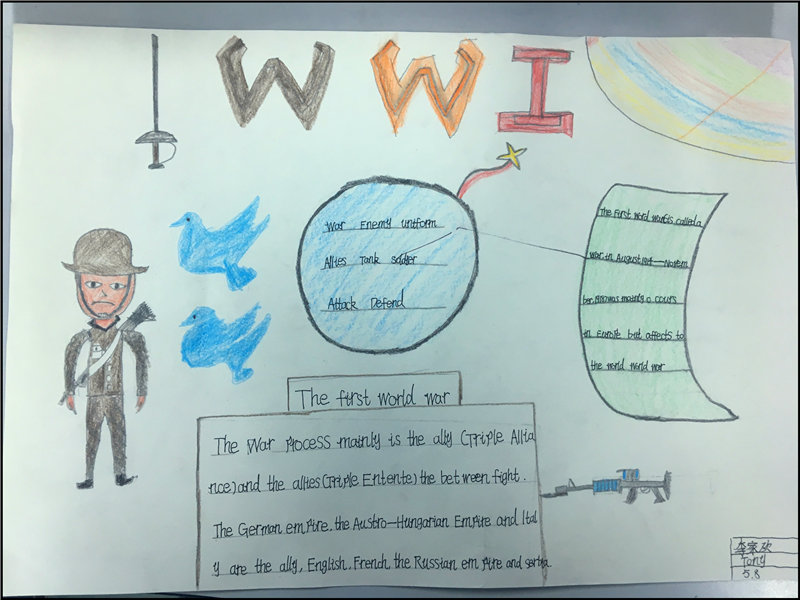 WWI
War Enemy uniform
Allies Tank soldier
Attack Defend
The first word warsis called a
war.in August 1914—Novem
ber,1918was mainly a cours
in Europe but affects to
the world world war
The first world war
The War Process mainly is the ally (Triple Allia
nce) and the allies(Triple Entente) the between fight.
The German empire, the Austro-Hungarian Empire and Ital
y are the ally, English, French, the Russian empire and serbia.
李家欣
Tony
5.8